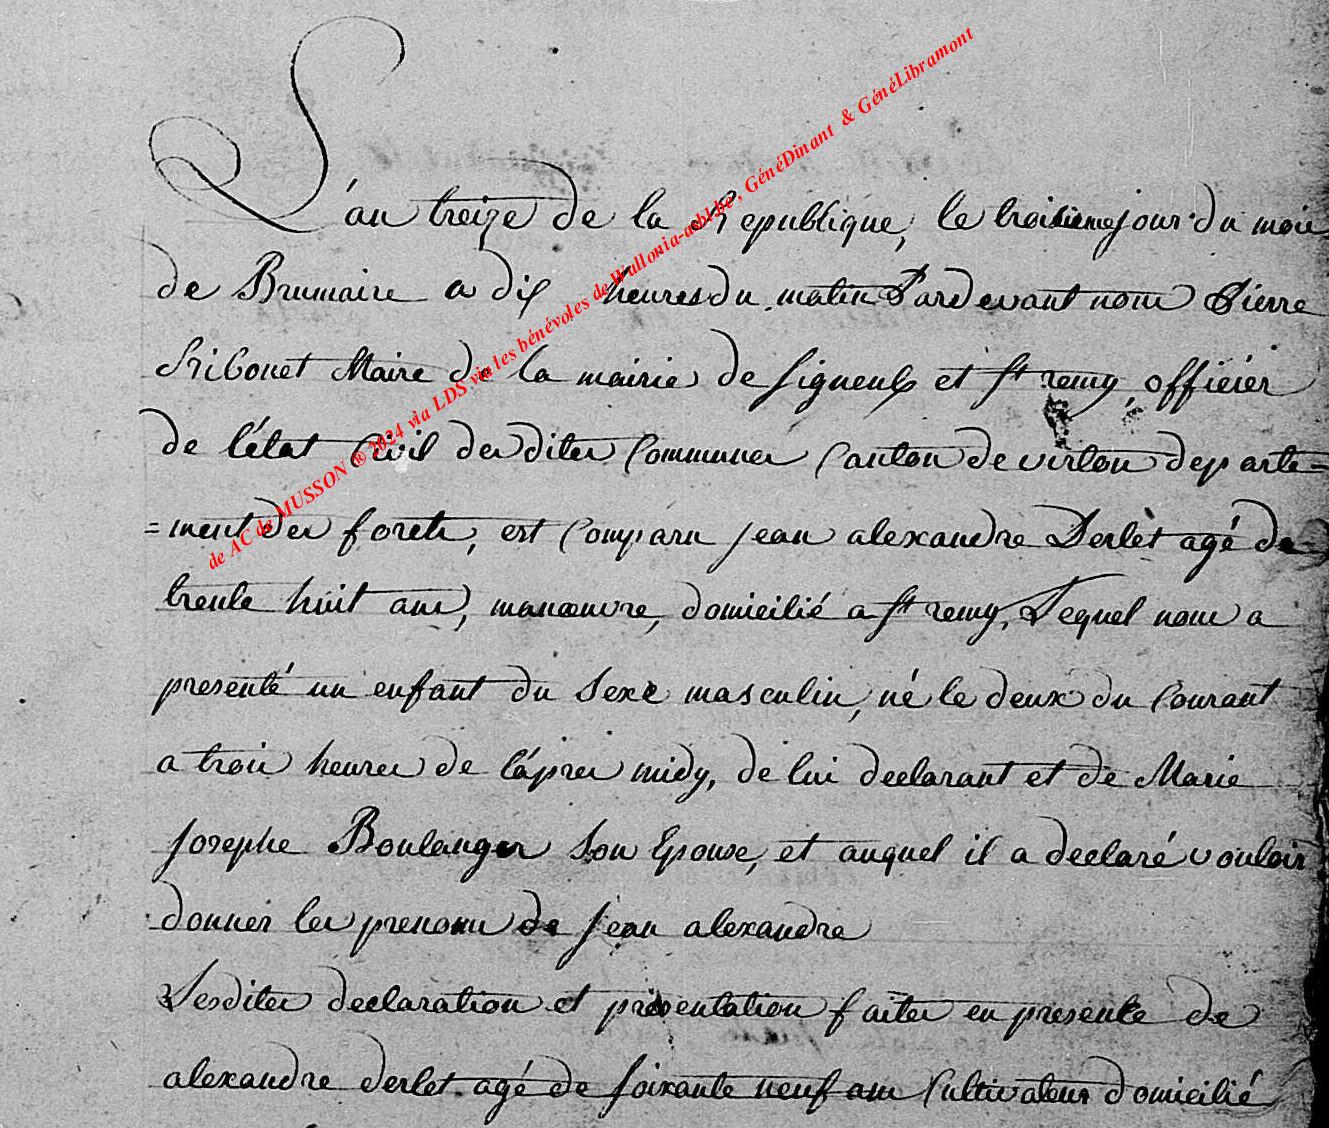 L'an treize de la Republique, le troisiemejour du mois
de Brumaire a dix heures du matin Pardevant nous Pierre
Ribonet Maire de la mairie de Signeulx et St remy, officier
de l'état Civil desdites Communes Canton de virton departe=
=ment des forets, est Comparu jean alexandre Derlet agé de
trente huit ans, manœuvre, domicilié a St remy, Lequel nous a
presenté un enfant du Sexe masculin, né le deux du Courant
a trois heures de l'après midy, de lui declarant et de Marie
Josephe Boulanger Son Epouse, et auquel il a declaré vouloir
donner les prenoms de Jean alexandre
Lesdites declaration et présentation faites en presente de
alexandre derlet agé de soixante neuf ans Cultivateur domicilié
de AC de MUSSON ® 2024 via LDS via les bénévoles de Wallonia-asbl.be, GénéDinant & GénéLibramont